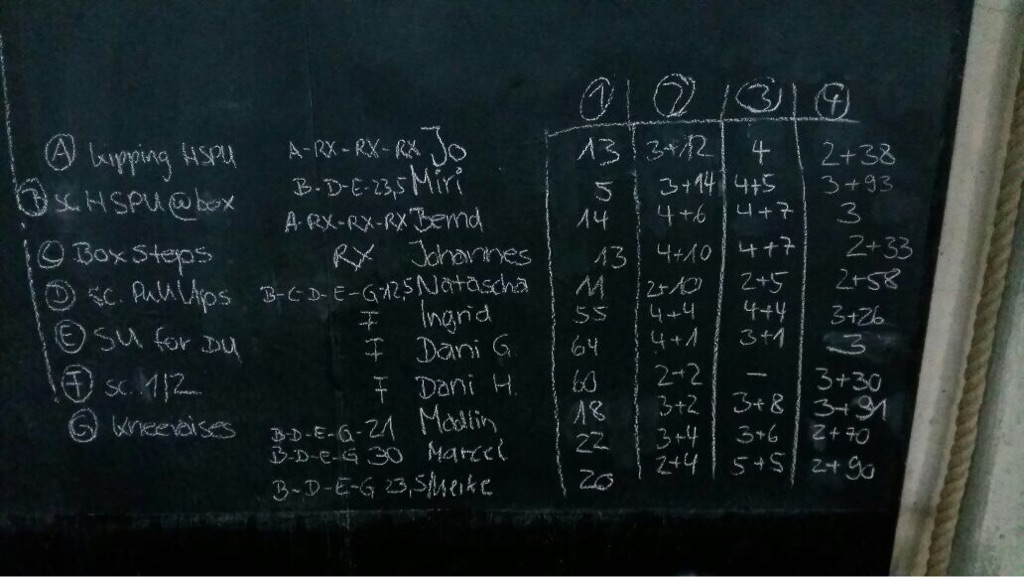 ① ② ③ ④
Ⓐ kipping HSPU A-RX-RX-RX Jo 13 3+12 4 2+38
Ⓑ sc. HSPU@box B-D-E-23,5 Miri 5 3+14 4+5 3+93
A-RX-RX-RX Bernd 14 4+6 4+7 3
Ⓒ Box Steps RX Johannes 13 4+10 4+7 2+33
Ⓓ sc. Pull Ups B-C-D-E-G-12,5 Natascha 11 2+10 2+5 2+58
F Ingrid 55 4+4 4+4 3+26
Ⓔ SU for DU F Dani G. 64 4+1 3+1 3
Ⓕ sc. 1/2 F Dani H. 60 2+2 – 3+30
Ⓖ kneeraises B-D-E-G-21 Madlin 18 3+2 3+8 3+31
B-D-E-G 30 Marcel 22 3+4 3+6 2+70
B-D-E-G 23,5 Meike 20 2+4 5+5 2+90